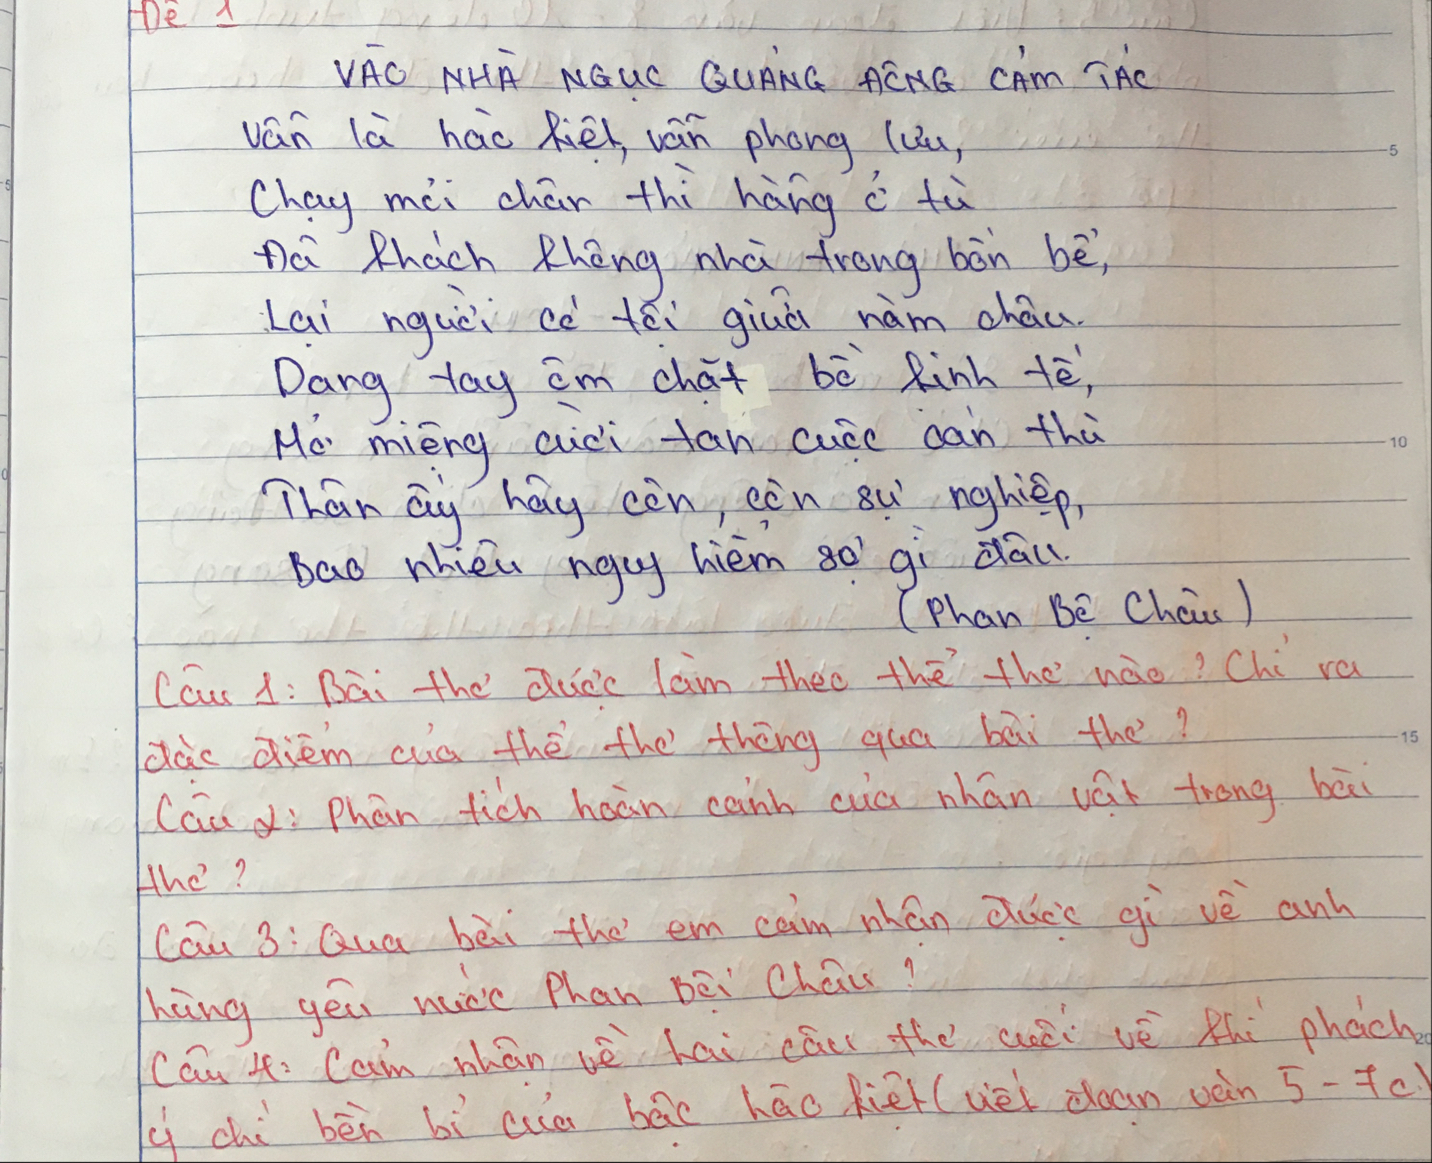 Đề 1
VÀO NHÀ NGỤC QUẢNG ĐÔNG CẢM TÁC
Vẫn là hào kiệt, vẫn phong lưu,
Chạy mỏi chân thì hẵng ở tù
Đã khách không nhà trong bốn bể,
Lại người có tội giữa năm châu.
Dang tay ôm chặt bồ kinh tế,
Mở miệng cười tan cuộc oán thù
Thân ấy hãy còn, còn sự nghiệp,
Bao nhiêu nguy hiểm sợ gì đâu.
(Phan Bộ Châu)
Câu 1: Bài thơ được làm theo thể thơ nào? Chỉ ra
đặc điểm của thể thơ thông qua bài thơ?
Câu 2: Phân tích hoàn cảnh của nhân vật trong bài
thơ?
Câu 3: Qua bài thơ em cảm nhận được gì về anh
hùng yêu nước Phan Bội Châu?
Câu 4: Cảm nhận về hai câu thơ cuối về khí phách
ý chí bền bỉ của bậc hào kiệt (viết đoạn văn 5-7c)